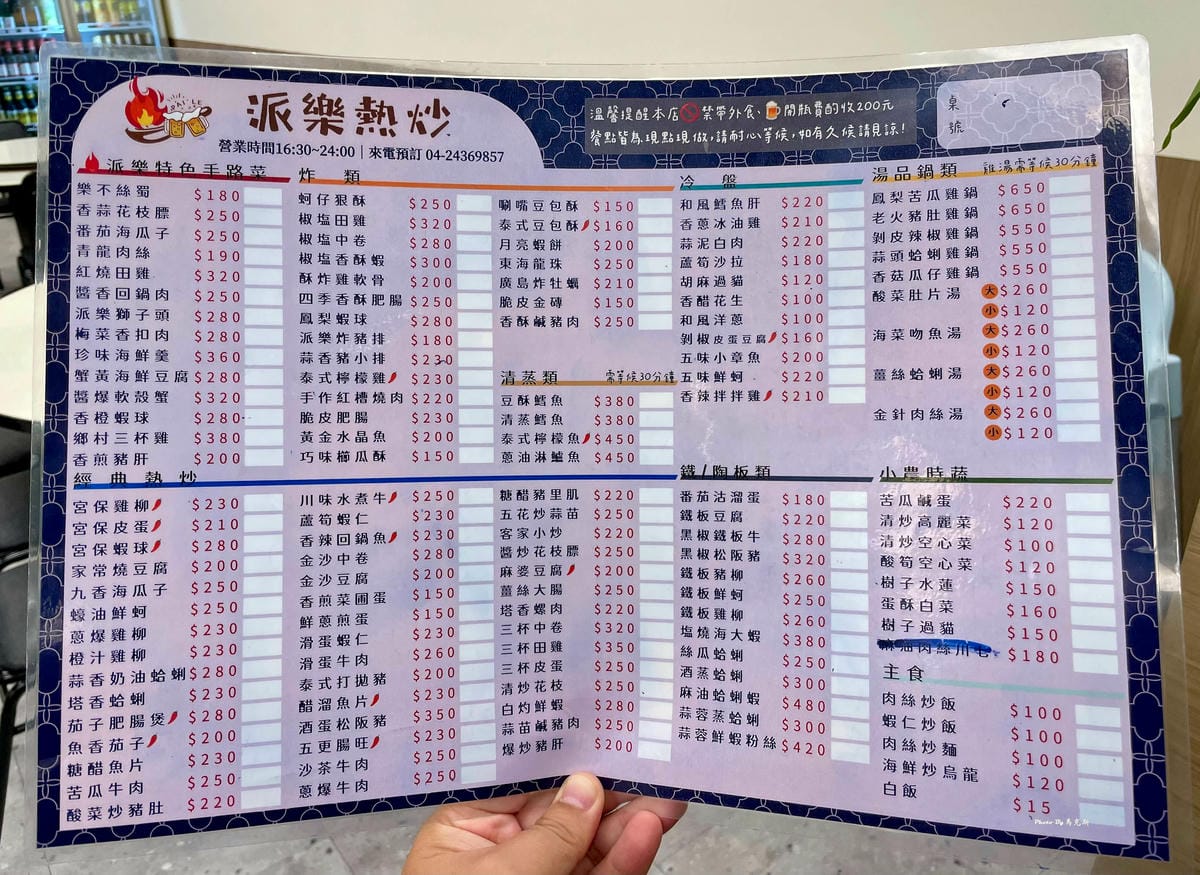 派樂熱炒
營業時間16:30~24:00｜來電預訂 04-24369857
溫馨提醒本店🚫禁帶外食、🍺開瓶費酌收200元
餐點皆為現點現做,請耐心等候,如有久候請見諒!
桌號
派樂特色手路菜
樂不絲蜀 $180
香蒜花枝膘 $250
番茄海瓜子 $250
青龍肉絲 $190
紅燒田雞 $320
醬香回鍋肉 $250
派樂獅子頭 $280
梅菜香扣肉 $280
珍味海鮮羹 $360
蟹黃海鮮豆腐 $280
醬爆軟殼蟹 $320
香橙蝦球 $280
鄉村三杯雞 $380
香煎豬肝 $200
炸類
蚵仔狠酥 $250
椒塩田雞 $320
椒塩中卷 $280
椒塩香酥蝦 $300
酥炸雞軟骨 $200
四季香酥肥腸 $250
鳳梨蝦球 $280
派樂炸豬排 $180
蒜香豬小排 $230
泰式檸檬雞 $230
手作紅糟燒肉 $220
脆皮肥腸 $230
黃金水晶魚 $200
巧味櫛瓜酥 $150
唰嘴豆包酥 $150
泰式豆包酥 $160
月亮蝦餅 $200
東海龍珠 $250
廣島炸牡蠣 $210
脆皮金磚 $150
香酥鹹豬肉 $250
清蒸類 需等候30分鐘
豆酥鱈魚 $380
清蒸鱈魚 $380
泰式檸檬魚 $450
蔥油淋鱸魚 $450
冷盤
和風鱈魚肝 $220
香蔥冰油雞 $210
蒜泥白肉 $220
蘆筍沙拉 $180
胡麻過貓 $120
香醋花生 $100
和風洋蔥 $100
剝椒皮蛋豆腐 $160
五味小章魚 $200
五味鮮蚵 $220
香辣拌拌雞 $210
湯品鍋類 雞湯需等候30分鐘
鳳梨苦瓜雞鍋 $650
老火豬肚雞鍋 $650
剝皮辣椒雞鍋 $550
蒜頭蛤蜊雞鍋 $550
香菇瓜仔雞鍋 $550
酸菜肚片湯 大 $260
小 $120
海菜吻魚湯 大 $260
小 $120
薑絲蛤蜊湯 大 $260
小 $120
金針肉絲湯 大 $260
小 $120
經典熱炒
宮保雞柳 $230
宮保皮蛋 $210
宮保蝦球 $280
家常燒豆腐 $200
九香海瓜子 $250
蠔油鮮蚵 $250
蔥爆雞柳 $230
橙汁雞柳 $230
蒜香奶油蛤蜊 $250
塔香蛤蜊 $230
茄子肥腸煲 $280
魚香茄子 $200
糖醋魚片 $230
苦瓜牛肉 $250
酸菜炒豬肚 $220
川味水煮牛 $250
蘆筍蝦仁 $230
香辣回鍋魚 $230
金沙中卷 $280
金沙豆腐 $200
香煎菜圃蛋 $150
鮮蔥煎蛋 $150
滑蛋蝦仁 $230
滑蛋牛肉 $260
泰式打拋豬 $200
醋溜魚片 $230
酒蛋松阪豬 $350
五更腸旺 $230
沙茶牛肉 $250
蔥爆牛肉 $250
糖醋豬里肌 $220
五花炒蒜苗 $250
客家小炒 $220
醬炒花枝膘 $250
麻婆豆腐 $200
薑絲大腸 $250
塔香螺肉 $220
三杯中卷 $320
三杯田雞 $350
三杯皮蛋 $250
清炒花枝 $250
白灼鮮蝦 $280
蒜苗鹹豬肉 $250
爆炒豬肝 $200
鐵/陶板類
番茄沽溜蛋 $180
鐵板豆腐 $220
黑椒鐵板牛 $280
黑椒松阪豬 $320
鐵板豬柳 $260
鐵板鮮蚵 $250
鐵板雞柳 $260
塩燒海大蝦 $380
絲瓜蛤蜊 $250
酒蒸蛤蜊 $300
麻油蛤蜊蝦 $480
蒜蓉蒸蛤蜊 $300
蒜蓉鮮蝦粉絲 $420
小農時蔬
苦瓜鹹蛋 $220
清炒高麗菜 $120
清炒空心菜 $100
酸筍空心菜 $120
樹子水蓮 $150
蛋酥白菜 $160
樹子過貓 $150
$180
主食
肉絲炒飯 $100
蝦仁炒飯 $100
肉絲炒麵 $100
海鮮炒烏龍 $120
白飯 $15
Photo By 馬克斯